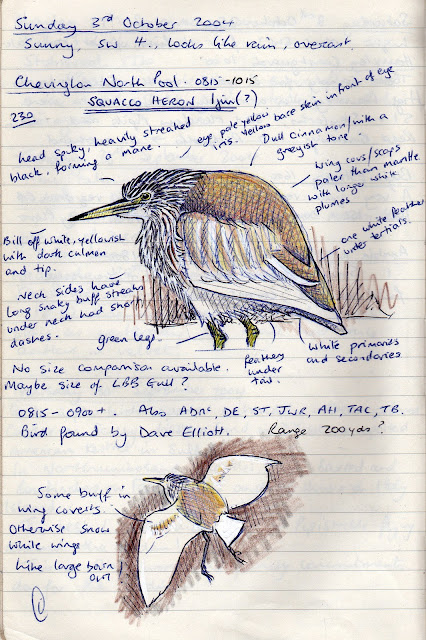 Sunday 3rd October 2004
Sunny, SW 4., looks like rain, overcast.
Chevington North Pool. 0815-1015
SQUACCO HERON 1 juv(?)
230
head spiky, heavily streaked
black, forming a mane.
eye pale yellow
iris. Yellow bare skin in front of eye
Dull Cinnamon/with a
greyish tone.
wing covs/scaps
paler than mantle
with longer white
plumes
one white feather
under tertials.
Bill off white, yellowish
with dark culmen
and tip.
Neck sides have
long snaky buff streaks
under neck had short
dashes.
green legs
feathery
under
tail.
white primaries
and secondaries
No size comparison available.
Maybe size of LBB Gull?
0815-0900+. Also ADMC, DE, ST, JWR, AH, TAC, TB.
Bird found by Dave Elliott. Range 200yds?
Some buff in
wing coverts.
Otherwise snow
white wings
like large barn
owl